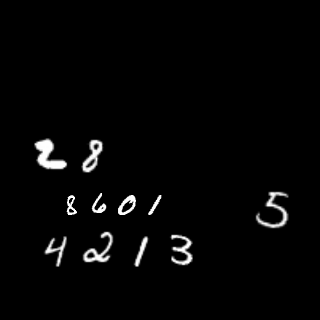 28
8601
5
4213